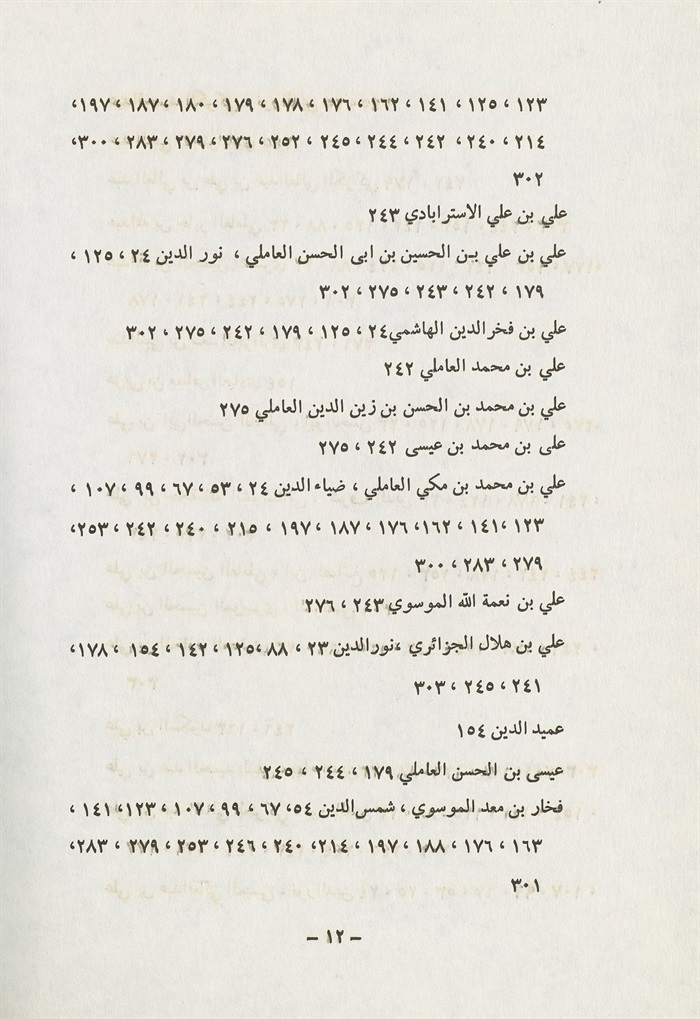 ١٢٣ ، ١٢٥ ، ١٤١ ، ١٦٢ ، ١٧٦ ، ١٧٨ ، ١٧٩ ، ١٨٠ ، ١٨٧ ، ١٩٧،
٢١٤ ، ٢٤٠ ، ٢٤٢ ، ٢٤٤ ، ٢٤٥ ، ٢٥٢ ، ٢٧٦ ، ٢٧٩ ، ٢٨٣ ، ٣٠٠،
٣٠٢
علي بن علي الاسترابادي ٢٤٣
علي بن علي بـن الحسين بن ابى الحسن العاملي ، نور الدين ٢٤ ، ١٢٥ ،
١٧٩ ، ٢٤٢ ، ٢٤٣ ، ٢٧٥ ، ٣٠٢
علي بن فخرالدين الهاشمي٢٤ ، ١٢٥ ، ١٧٩ ، ٢٤٢ ، ٢٧٥ ، ٣٠٢
علي بن محمد العاملي ٢٤٢
علي بن محمد بن الحسن بن زين الدين العاملي ٢٧٥
على بن محمد بن عيسى ٢٤٢ ، ٢٧٥
علي بن محمد بن مكي العاملي ، ضياءالدين ٢٤ ، ٥٣ ، ٦٧ ، ٩٩ ، ١٠٧ ،
١٢٣ ،١٤١ ، ١٦٢، ١٧٦ ، ١٨٧ ، ١٩٧ ، ٢١٥ ، ٢٤٠ ، ٢٤٢ ، ٢٥٣،
٢٧٩ ، ٢٨٣ ، ٣٠٠
علي بن نعمة الله الموسوي ٢٤٣ ، ٢٧٦
علي بن هلال الجزائري ،نورالدين ٢٣ ، ٨٨ ،١٢٥ ، ١٤٢ ، ١٥٤ ، ١٧٨،
٢٤١ ، ٢٤٥ ، ٣٠٣
عميد الدين ١٥٤
عيسى بن الحسن العاملي ١٧٩ ، ٢٤٤ ، ٢٤٥
فخار بن معد الموسوي ، شمس‌الدين ٥٤، ٦٧ ، ٩٩ ، ١٠٧ ، ١٢٣، ١٤١ ،
١٦٣ ، ١٧٦ ، ١٨٨ ، ١٩٧ ، ٢١٤، ٢٤٠ ، ٢٤٦ ، ٢٥٣ ، ٢٧٩ ، ٢٨٣،
٣٠١
– ١٢ –